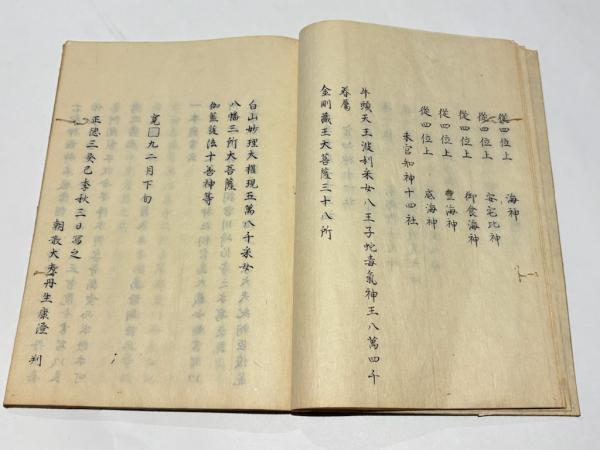 從四位上 海神
從四位上 安宅比神
從四位上 御食海神
從四位上 豐海神
從四位上 底海神
未官知神十四社
牛頭天王波利采女八王子蛇毒氣神王八萬四千
眷屬
金剛藏王大菩薩三十八所
白山妙理大權現五萬八千采女
八幡三所大菩薩
伽藍護法十善神等
寛□九二月下旬
正德三癸巳季秋三日寫之
朝散大夫丹生康 判